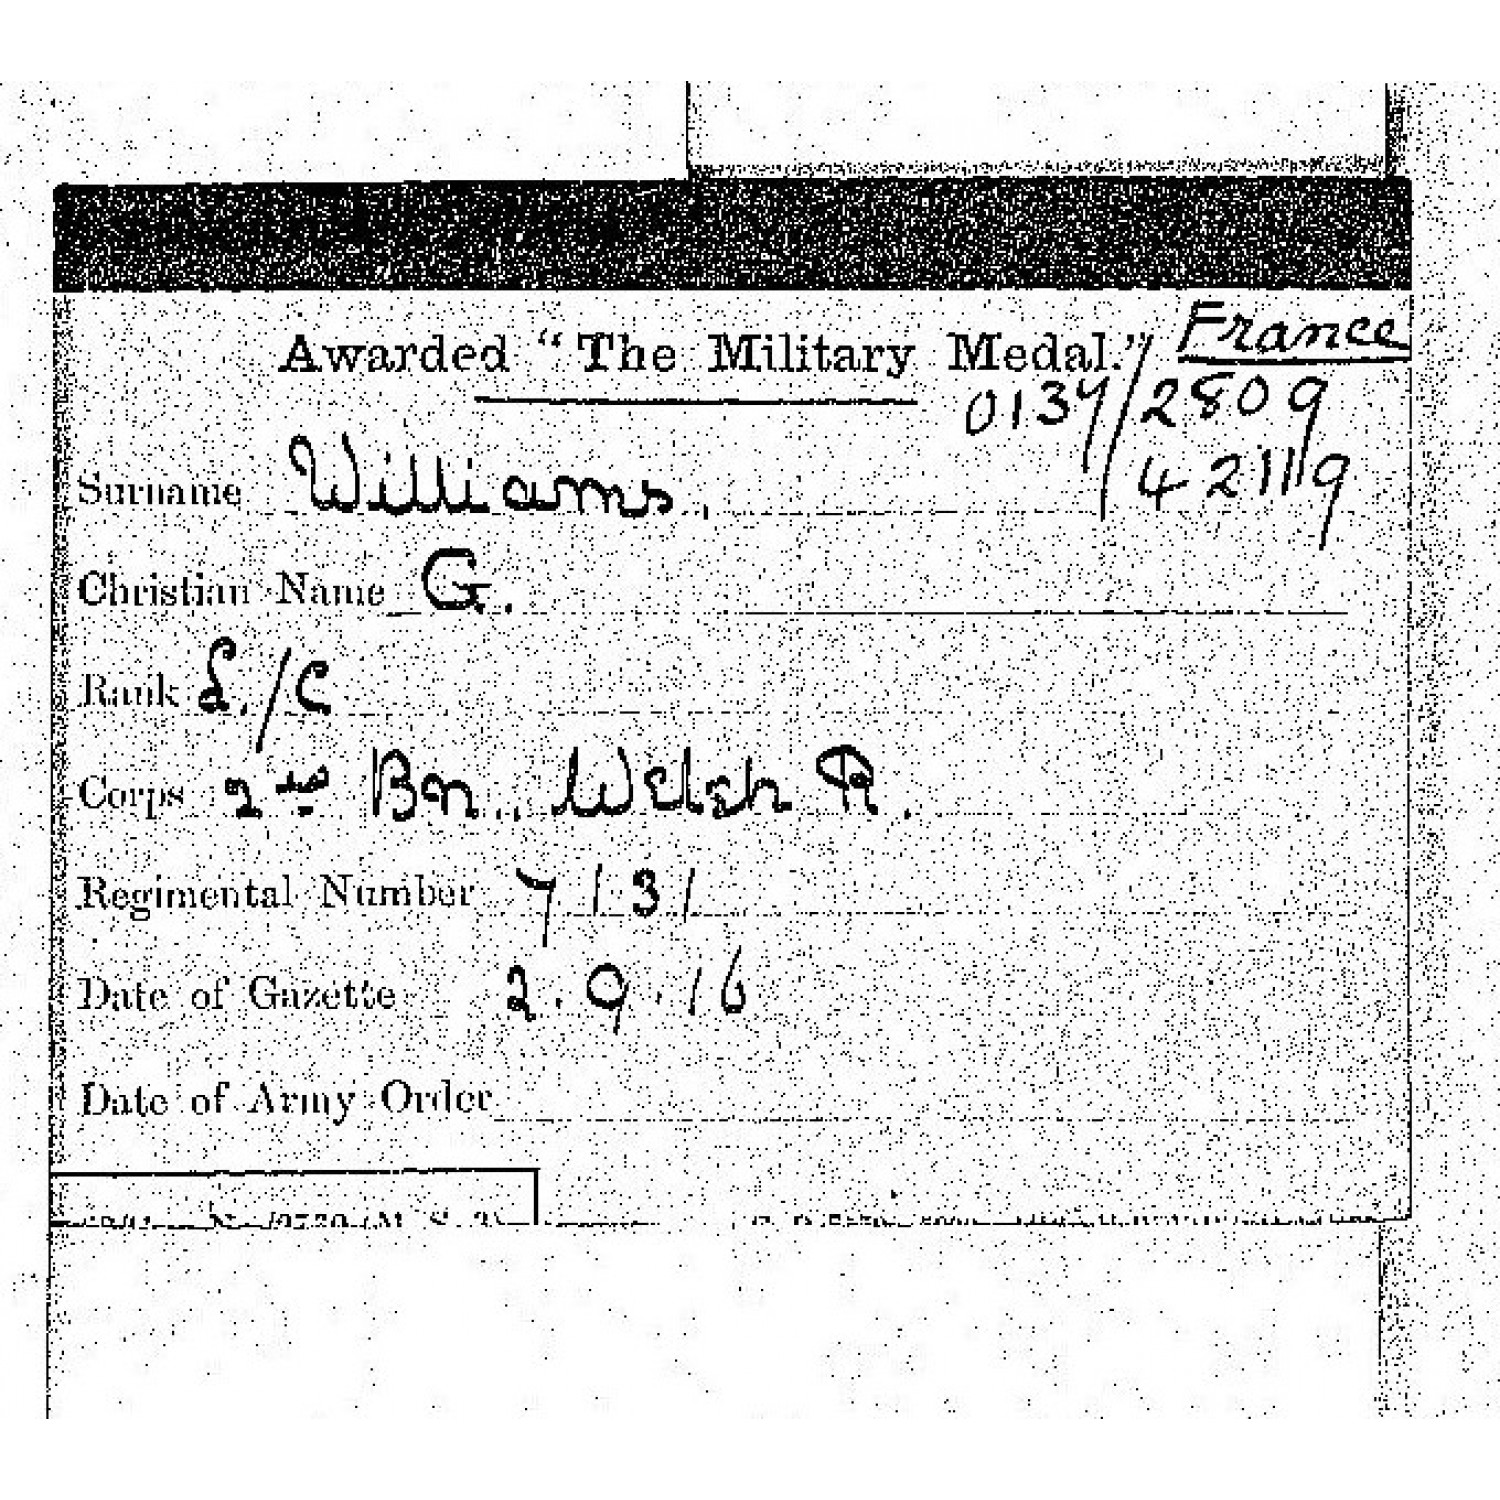 Awarded "The Military Medal." France
0137/2809
42119
Surname Williams.
Christian Name G.
Rank L./C
Corps 2nd Bn., Welsh R.
Regimental Number 7131
Date of Gazette 2.9.16
Date of Army Order